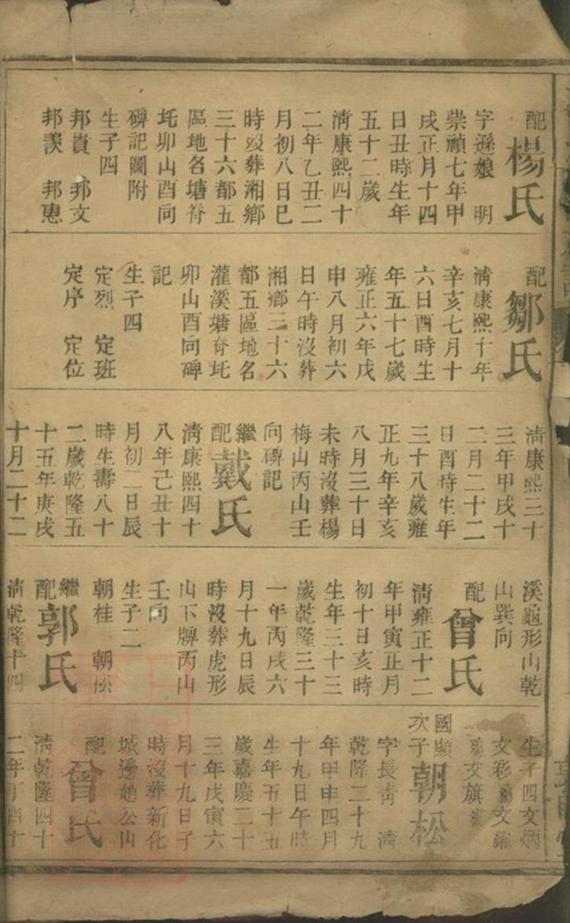 配楊氏
字遜娘　明
崇禎七年甲
戌正月十四
日丑時生年
五十二歲
清康熙四十
二年乙丑二
月初八日巳
時沒葬湘鄉
三十六都五
區地名塘脊
圫卯山酉向
碑記圖附
生子四
邦貴　邦文
邦羨　邦惠
配鄒氏
清康熙十年
辛亥七月十
六日酉時生
年五十七歲
雍正六年戊
申八月初六
日午時沒葬
湘鄉三十六
都五區地名
灌溪塘脊圫
卯山酉向碑
記
生子四
定烈　定班
定序　定位
清康熙三十
三年甲戌十
二月二十二
日酉時生年
三十八歲雍
正九年辛亥
八月三十日
未時沒葬楊
梅山丙山壬
向碑記
繼配戴氏
清康熙四十
八年己丑十
月初二日辰
時生壽八十
二歲乾隆五
十五年庚戌
十月二十二
溪龜形山乾
山巽向
配曾氏
清雍正十二
年甲寅正月
初十日亥時
生年三十三
歲乾隆三十
一年丙戌六
月十九日辰
時沒葬虎形
山下牌丙山
壬向
生子二
朝桂　朝松
繼配郭氏
清乾隆十四
生子四文炳
文彩　文耀
文旗
國顯次子朝松
字長青　清
乾隆二十九
年甲申四月
十九日午時
生年五十五
歲嘉慶二十
三年戊寅六
月十九日子
時沒葬新化
城邊趙公山
配曾氏
清乾隆四十
二年丁酉十